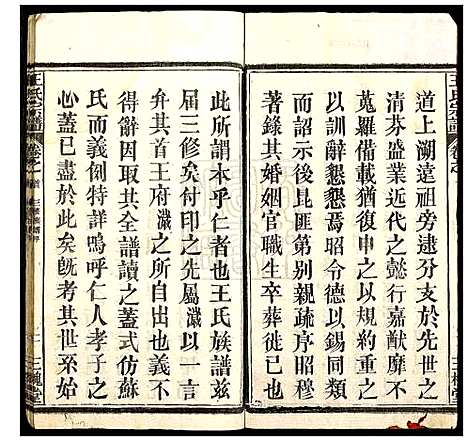 道上溯遠祖旁逮分支於先世之
清芬盛業近代之懿行嘉猷靡不
蒐羅備載猶復申之以規約重之
以訓辭懇懇焉昭令德以錫同類
而詔示後昆匪第別親疏序昭穆
著籍共婚姻官職生卒葬徙已也
王氏宗譜
卷之一
此所謂本乎仁者也王氏族譜茲
屆三修矣付印之先屬瀻以一言
首王府瀻之所自出也義不
得辭因取其全譜讀之蓋式仿蘇
氏而義例特詳嗚呼仁人孝子之
心蓋已盡於此矣旣考其世系始
王氏宗譜
卷之一
三槐堂